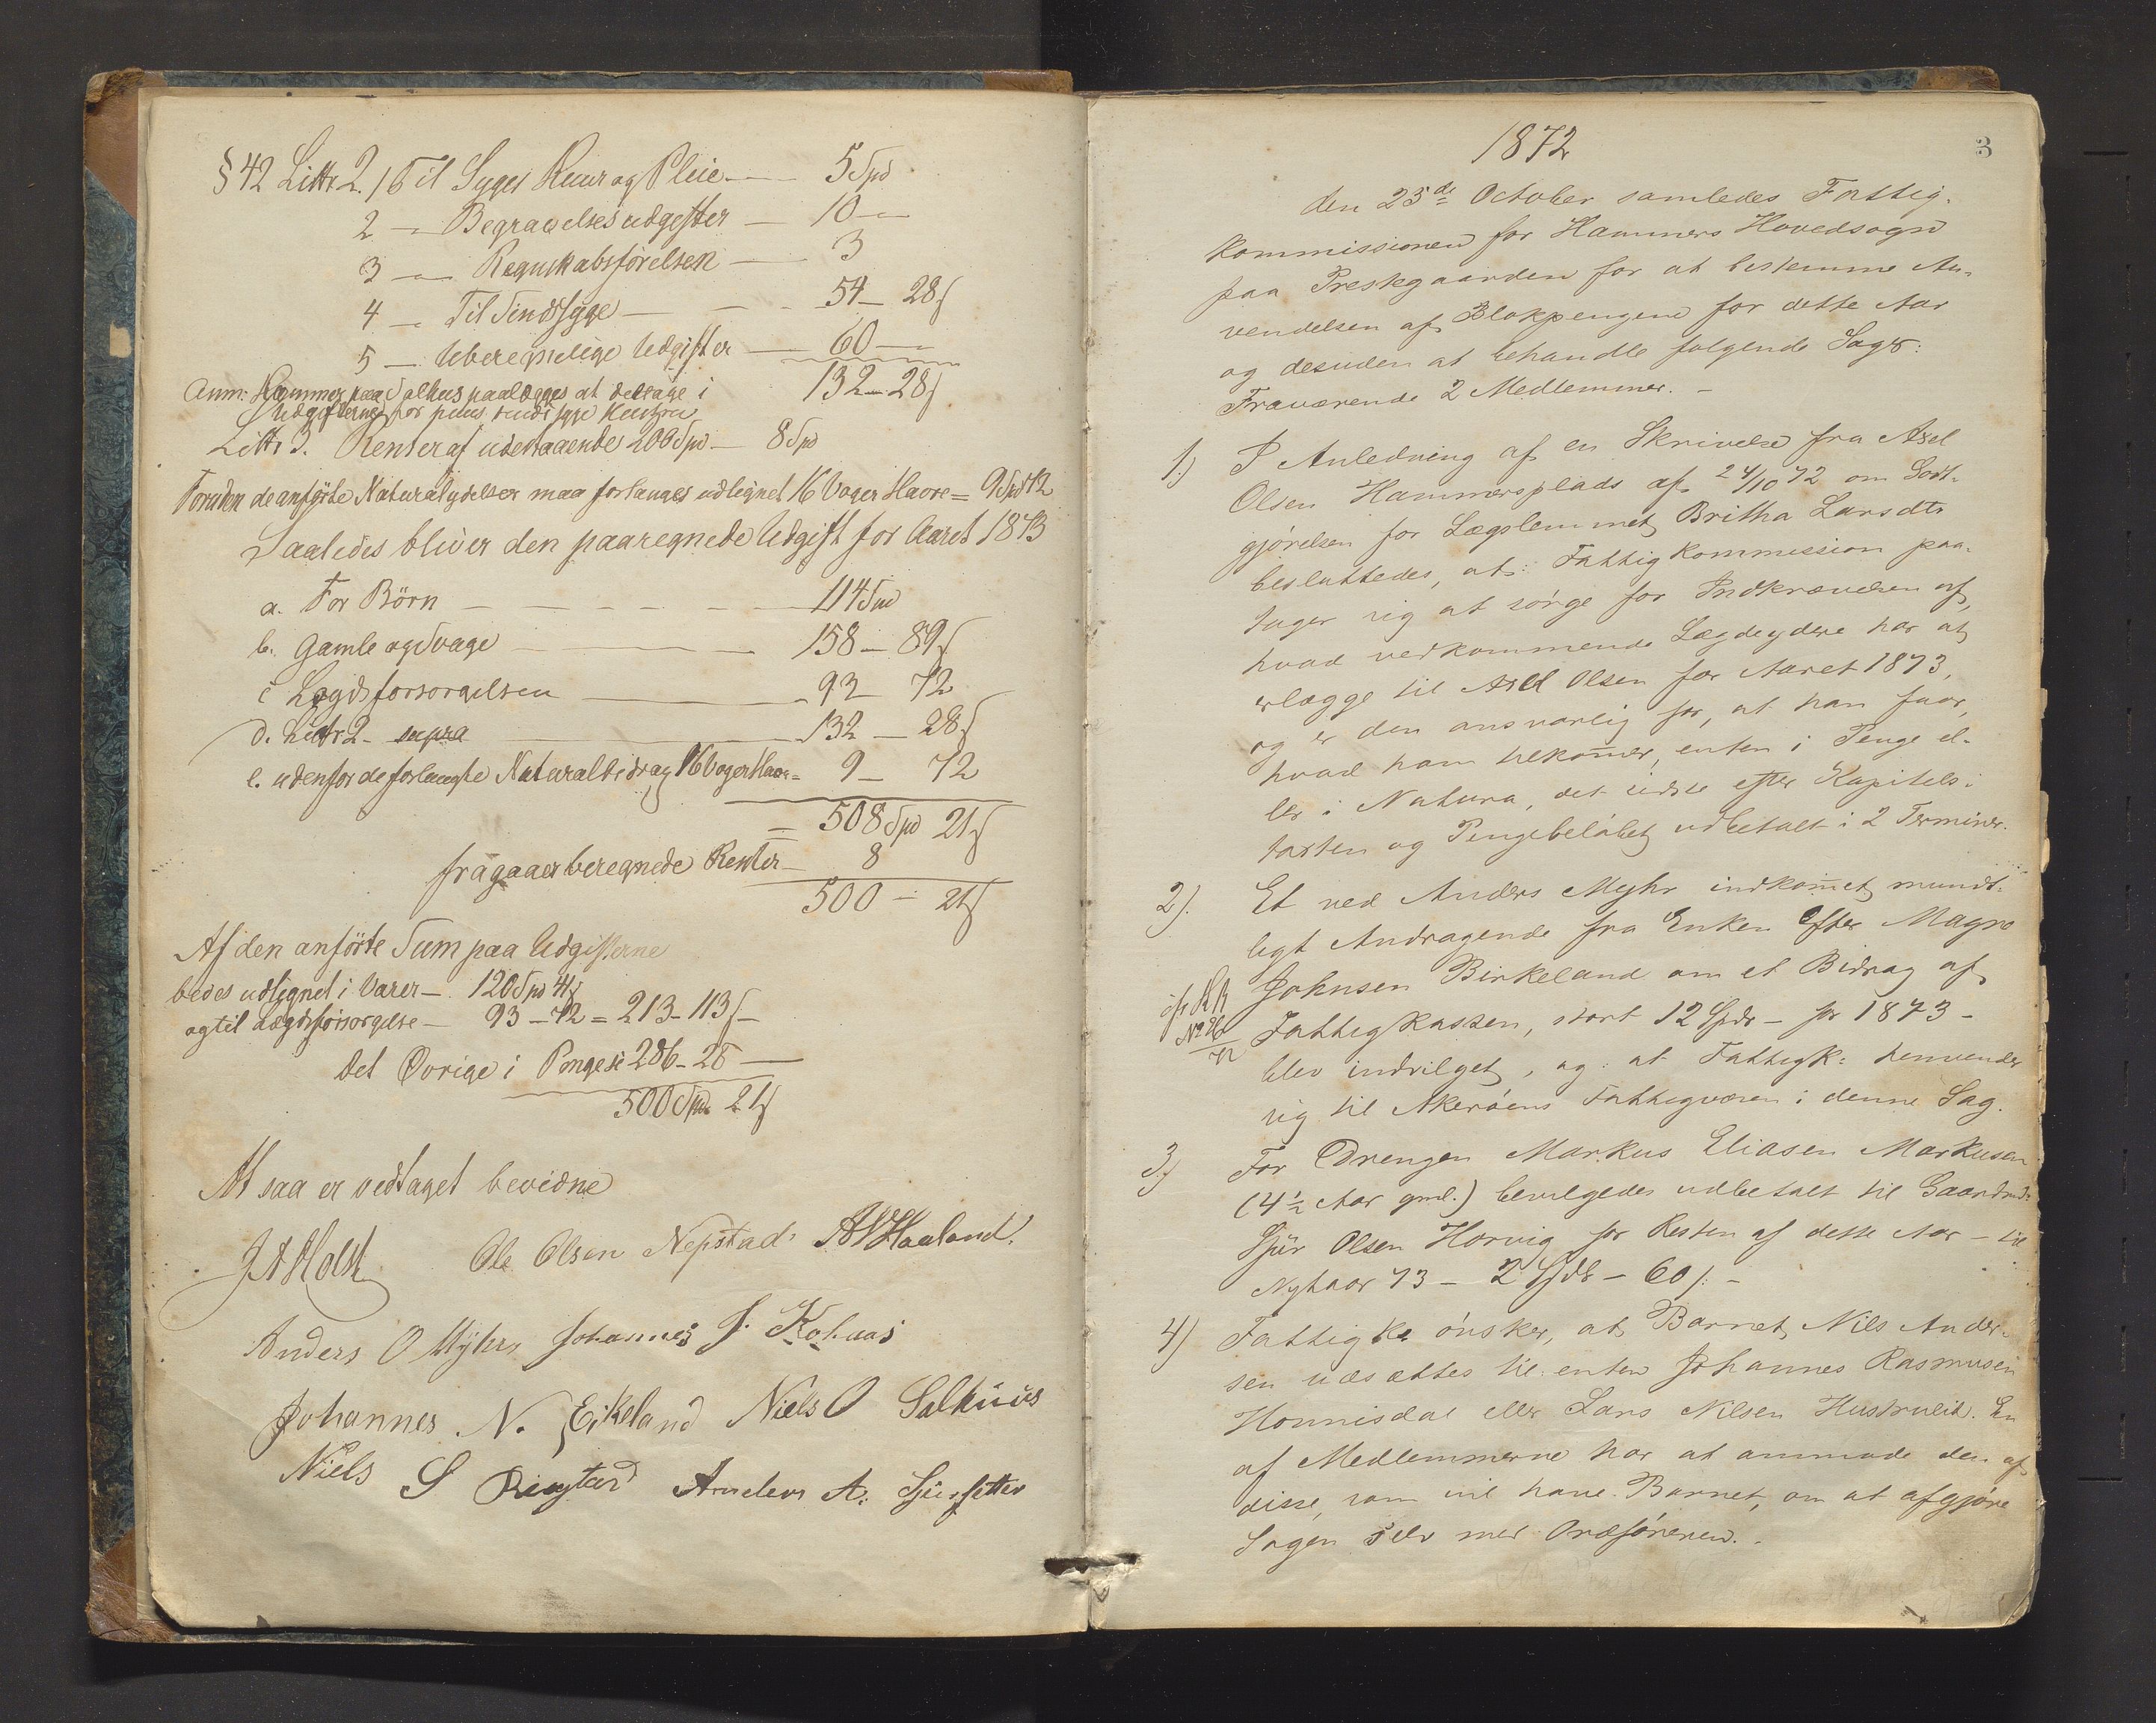 § 42 Littr 2. 1 Til Syges Kuur og Pleie — 5 Spd
2 — Begravelsesudgifter — 10 —
3 — Regnskabsførelsen — 3
4 — Til Sindssyge — 54 — 28 s
5 — Uberegnelige Udgifter — 60 —
132 — 28 s
Anm: Hammer paa Salhus paalægges at deltage i
Udgifterne for
Littr 3. Renter af udestaaende 200 Spd — 8 Spd
Foruden de anførte Naturalydelser maa forlanges udlignet 16 Voger Havre = 9 Spd 72
Saaledes bliver den paaregnede Udgift for Aaret 1873
a. For Børn — 114 Spd
b. Gamle og Svage — 158 — 89 s
c Lægdsforsørgelsen — 93 — 72
d. Littr 2 — supra — 132 — 28 s
e. udenfor de forlangte Naturalbidrag 16 Voger Havre = 9 — 72
= 508 Spd 21 s
fragaaer beregnede Renter — 8
500 — 21 s
Af den anførte Sum paa Udgifterne
bedes udlignet i Varer — 120 Spd 41 s
og til Lægdsforsørgelse — 93 — 72 = 213 — 113 s —
Det Øvrige i Penge 286 — 28 —
500 Spd 21 s
At saa er vedtaget bevidne
J A Holst Ole Olsen Nepstad. A W Haaland.
Anders O Myhr Johannes J. Kohaas
Johannes N. Eikeland Niels O Salhuus
Niels S Ringstad Anders A:
3
1872
den 25de October samledes Fattig-
kommissionen for Hammers Hovedsogn
paa Prestegaarden for at bestemme An-
vendelsen af Blokpengene for dette Aar
og desuden at behandle følgende Sager:
Fraværende 2 Medlemmer. —
1.) I Anledning af en Skrivelse fra Axel
Olsen Hammersplads af 24/10 72 om Godt-
gjørelsen for Lægslemmet Britha Larsdtr
besluttedes, at: Fattigkommission paa-
tager sig at sørge for Indkrævelsen af,
hvad vedkommende Lægdeydere har at
erlægge til Axel Olsen for Aaret 1873,
og er den ansvarlig for, at han faar,
hvad ham tilkommer, enten i Penge el-
ler i Natura, det sidste efter Kapitels-
taxten og Pengebeløbet udbetalt i 2 Terminer.
2). Et ved Anders Myhr indkommet mundt-
ligt Andragende fra Enken efter Magne
Johnsen Birkeland om et Bidrag af
Fattigkassen, stort 12 Spdr — for 1873 —
blev indvilget, og: at Fattigk: henvender
sig til Akerøens Fattigvæsen i denne Sag.
3.) For Drengen Markus Eliasen Markusen
(4½ Aar gml.) bevilgedes udbetalt til Gaardmd:
Sjur Olsen Horvig for Resten af dette Aar — til
Nytaar 73 — 2 Spdr — 60 s. —
4) Fattigk: ønsker, at Barnet Nils Ander-
sen udsættes til enten Johannes Rasmusen
Honnisdal eller Lars Nilsen Hustrulid. En
af Medlemmerne har at anmode den af
disse, som vil have Barnet, om at afgjøre
Sagen selv med Ordføreren.